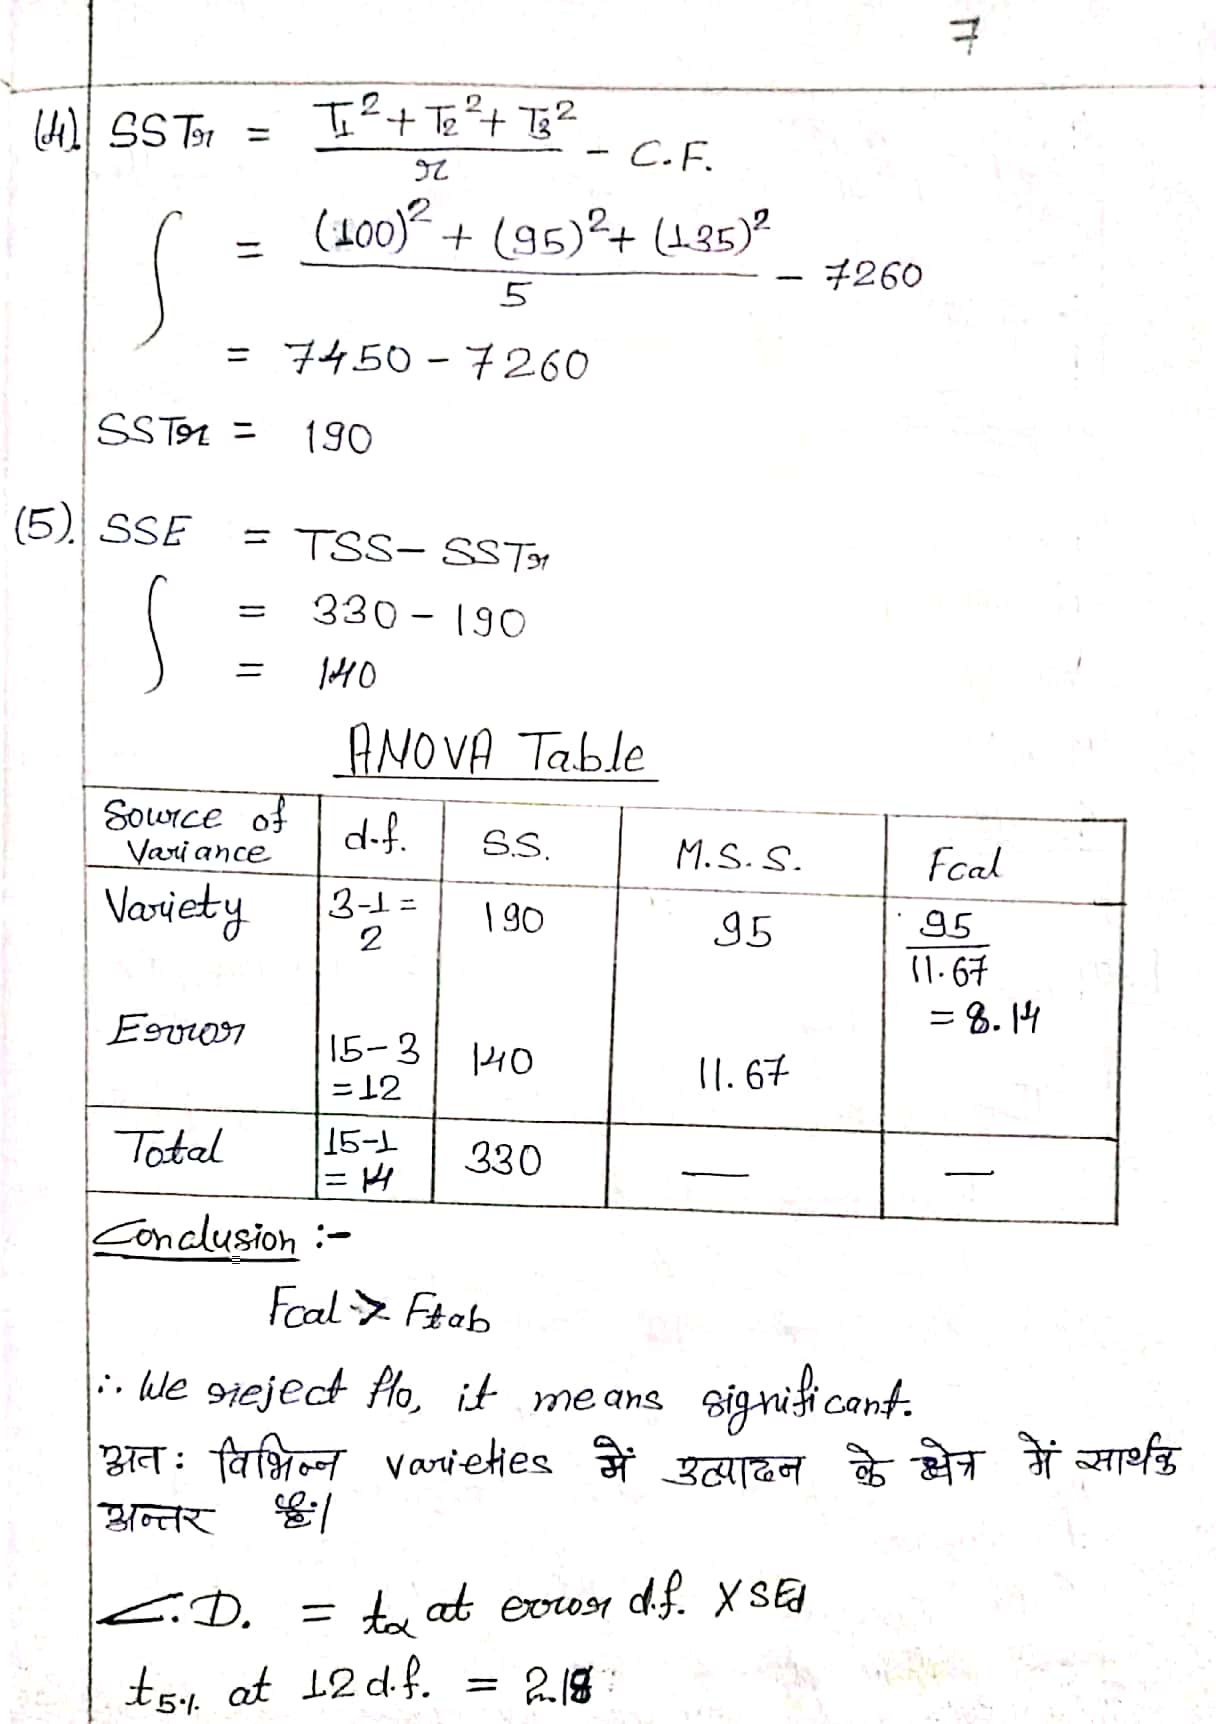 7
(4). SSTr = T₁² + T₂² + T₃² / r - C.F.
= (100)² + (95)² + (135)² / 5 - 7260
= 7450 - 7260
SSTr = 190
(5). SSE = TSS - SSTr
= 330 - 190
= 140
ANOVA Table
Source of Variance d.f. S.S. M.S.S. Fcal
Variety 3-1 = 2 190 95 95 / 11.67 = 8.14
Error 15-3 = 12 140 11.67
Total 15-1 = 14 330 — —
Conclusion :-
Fcal > Ftab
∴ We reject Ho, it means significant.
अतः विभिन्न varieties में उत्पादन के क्षेत्र में सार्थक
अन्तर हैं।
C.D. = tα at error d.f. X SEd
t5% at 12 d.f. = 2.18